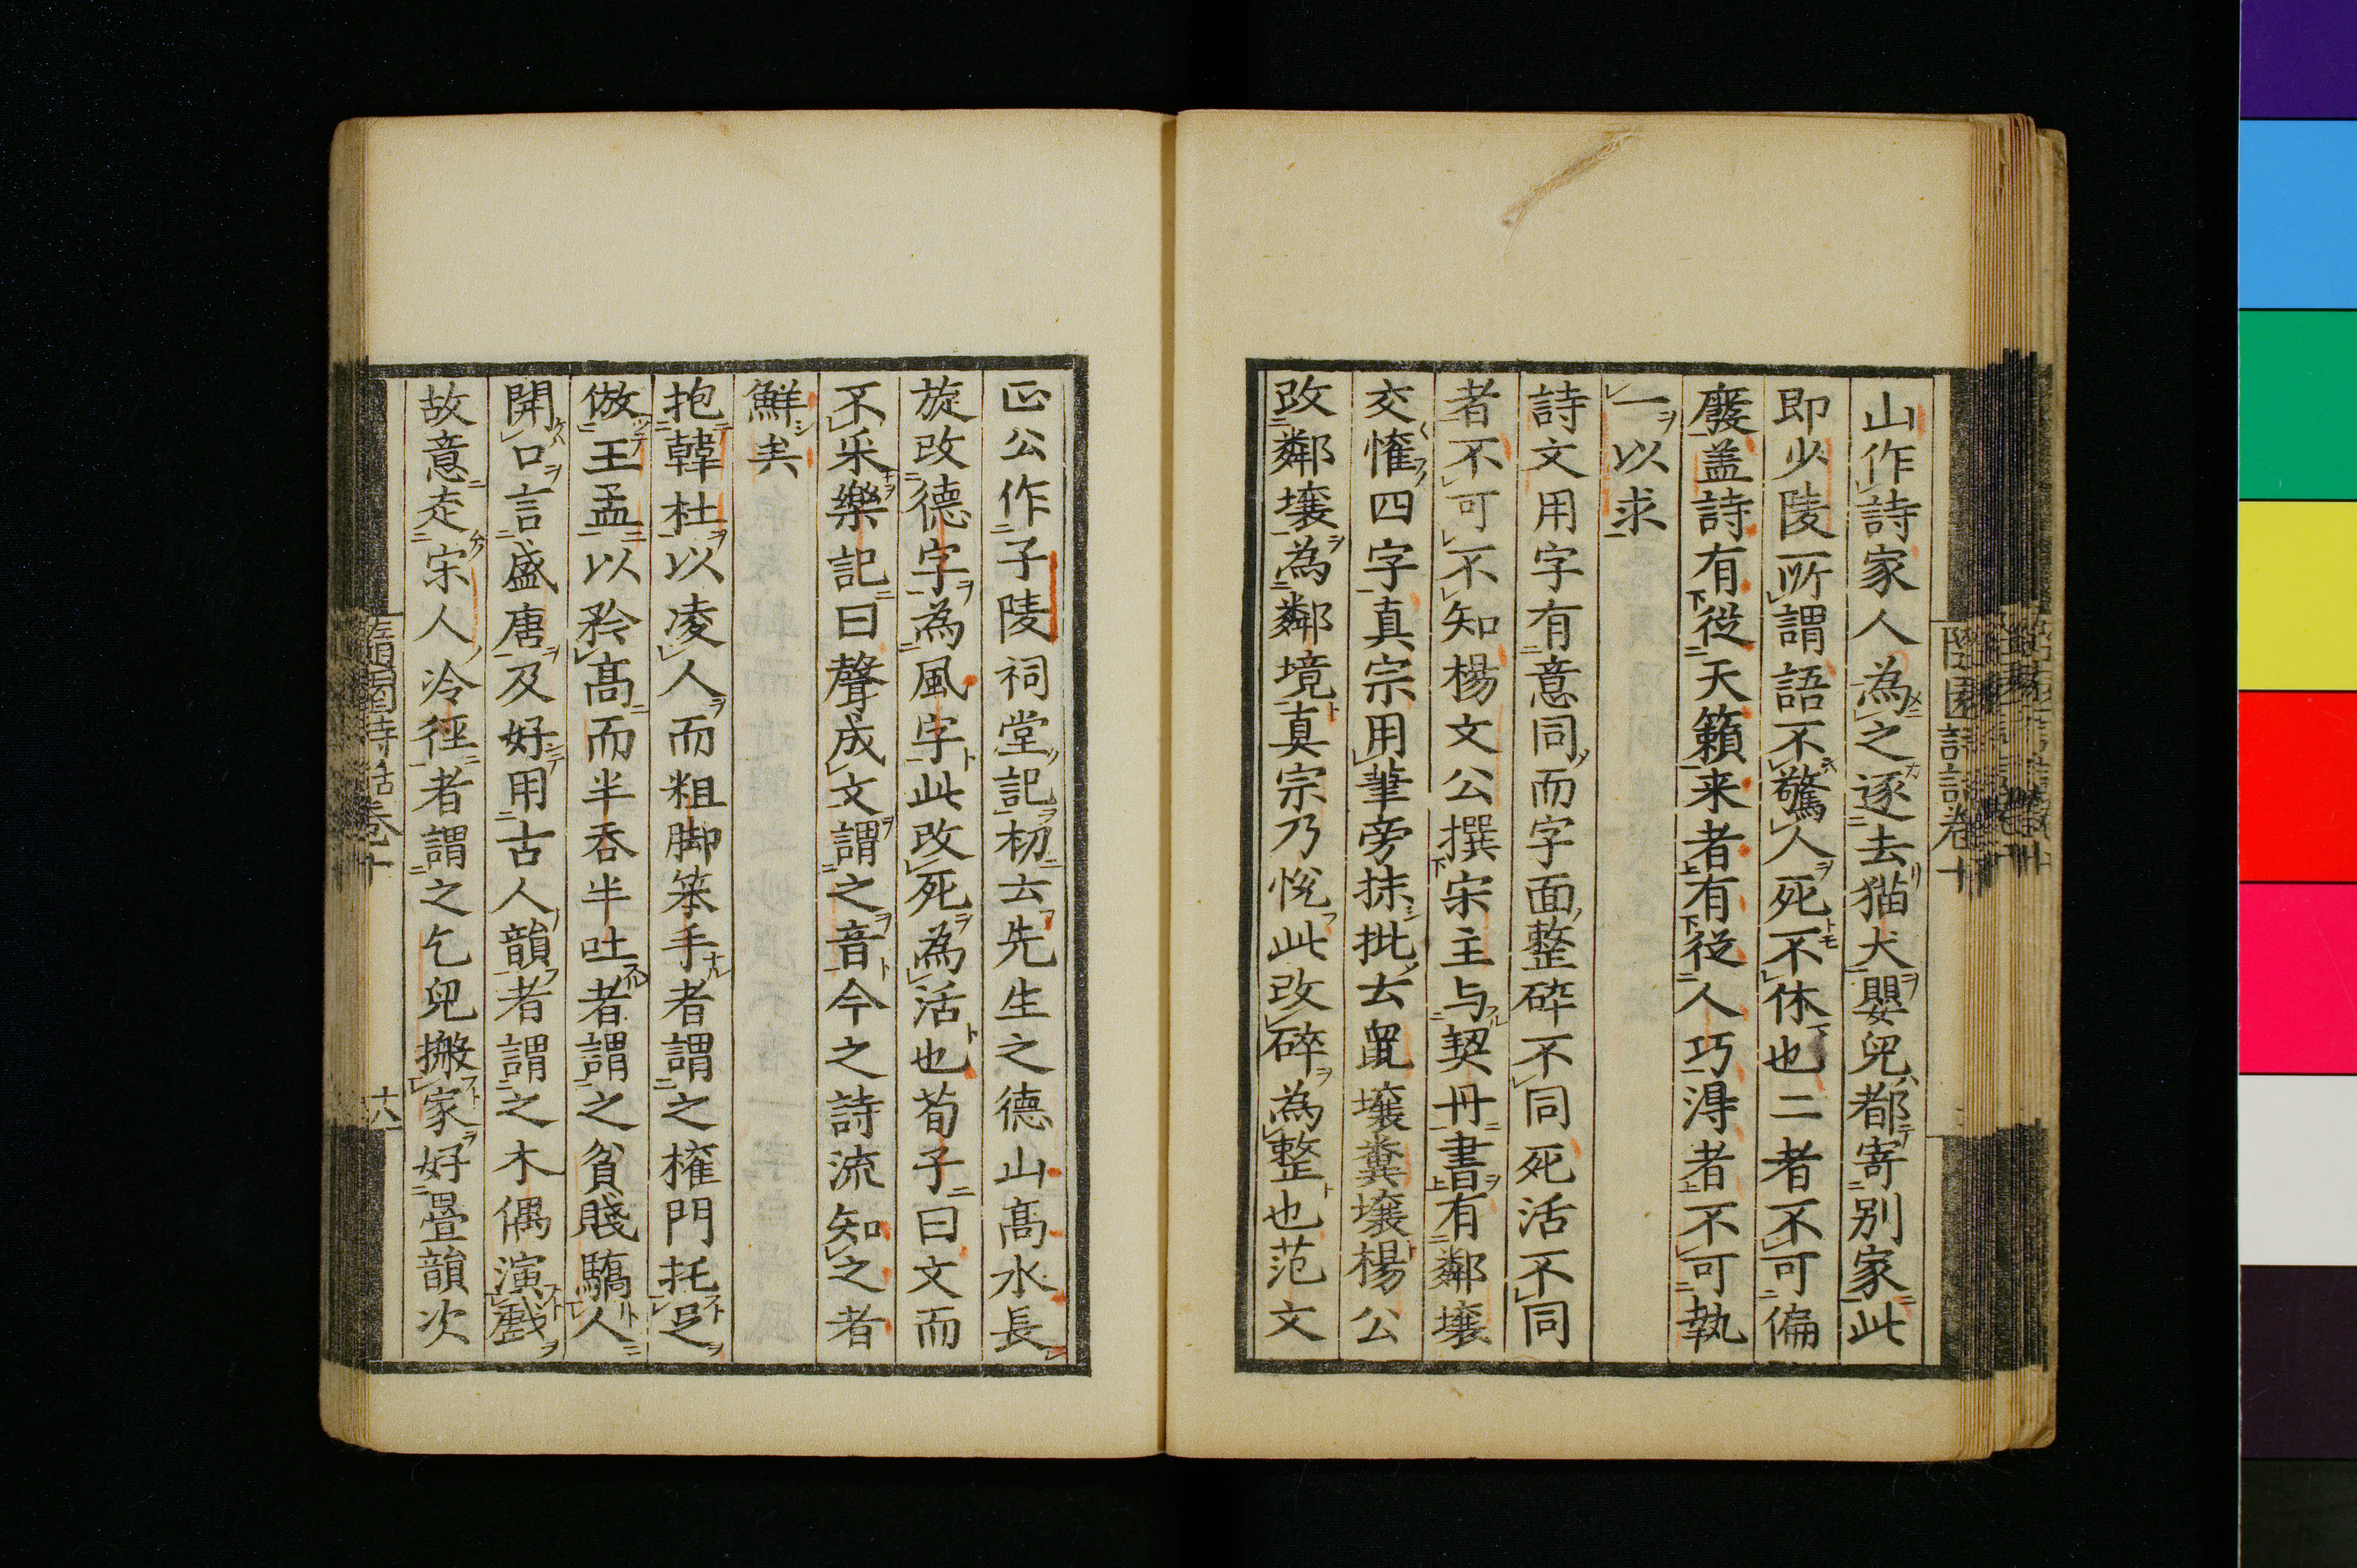 山作詩家人為之逐去猫犬嬰兒都寄別家此
即少陵所謂語不驚人死不休也二者不可偏
廢盖詩有從天籟来者有從人巧淂者不可執
一以求
詩文用字有意同而字面整碎不同死活不同
者不可不知楊文公撰宋主与契丹書有鄰壤
交懽四字真宗用筆旁抹批云鼠壤糞壤楊公
改鄰壤為鄰境真宗乃悅此改碎為整也范文
隨園詩話卷十
正公作子陵祠堂記初云先生之德山高水長
旋改德字為風字此改死為活也荀子曰文而
不采樂記曰聲成文謂之音今之詩流知之者
鮮矣
抱韓杜以凌人而粗脚笨手者謂之権門托足
倣王孟以矜高而半吞半吐者謂之貧賤驕人
開口言盛唐及好用古人韻者謂之木偶演戲
故意走宋人冷徑者謂之乞兒搬家好疊韻次
隨園詩話卷十
十六